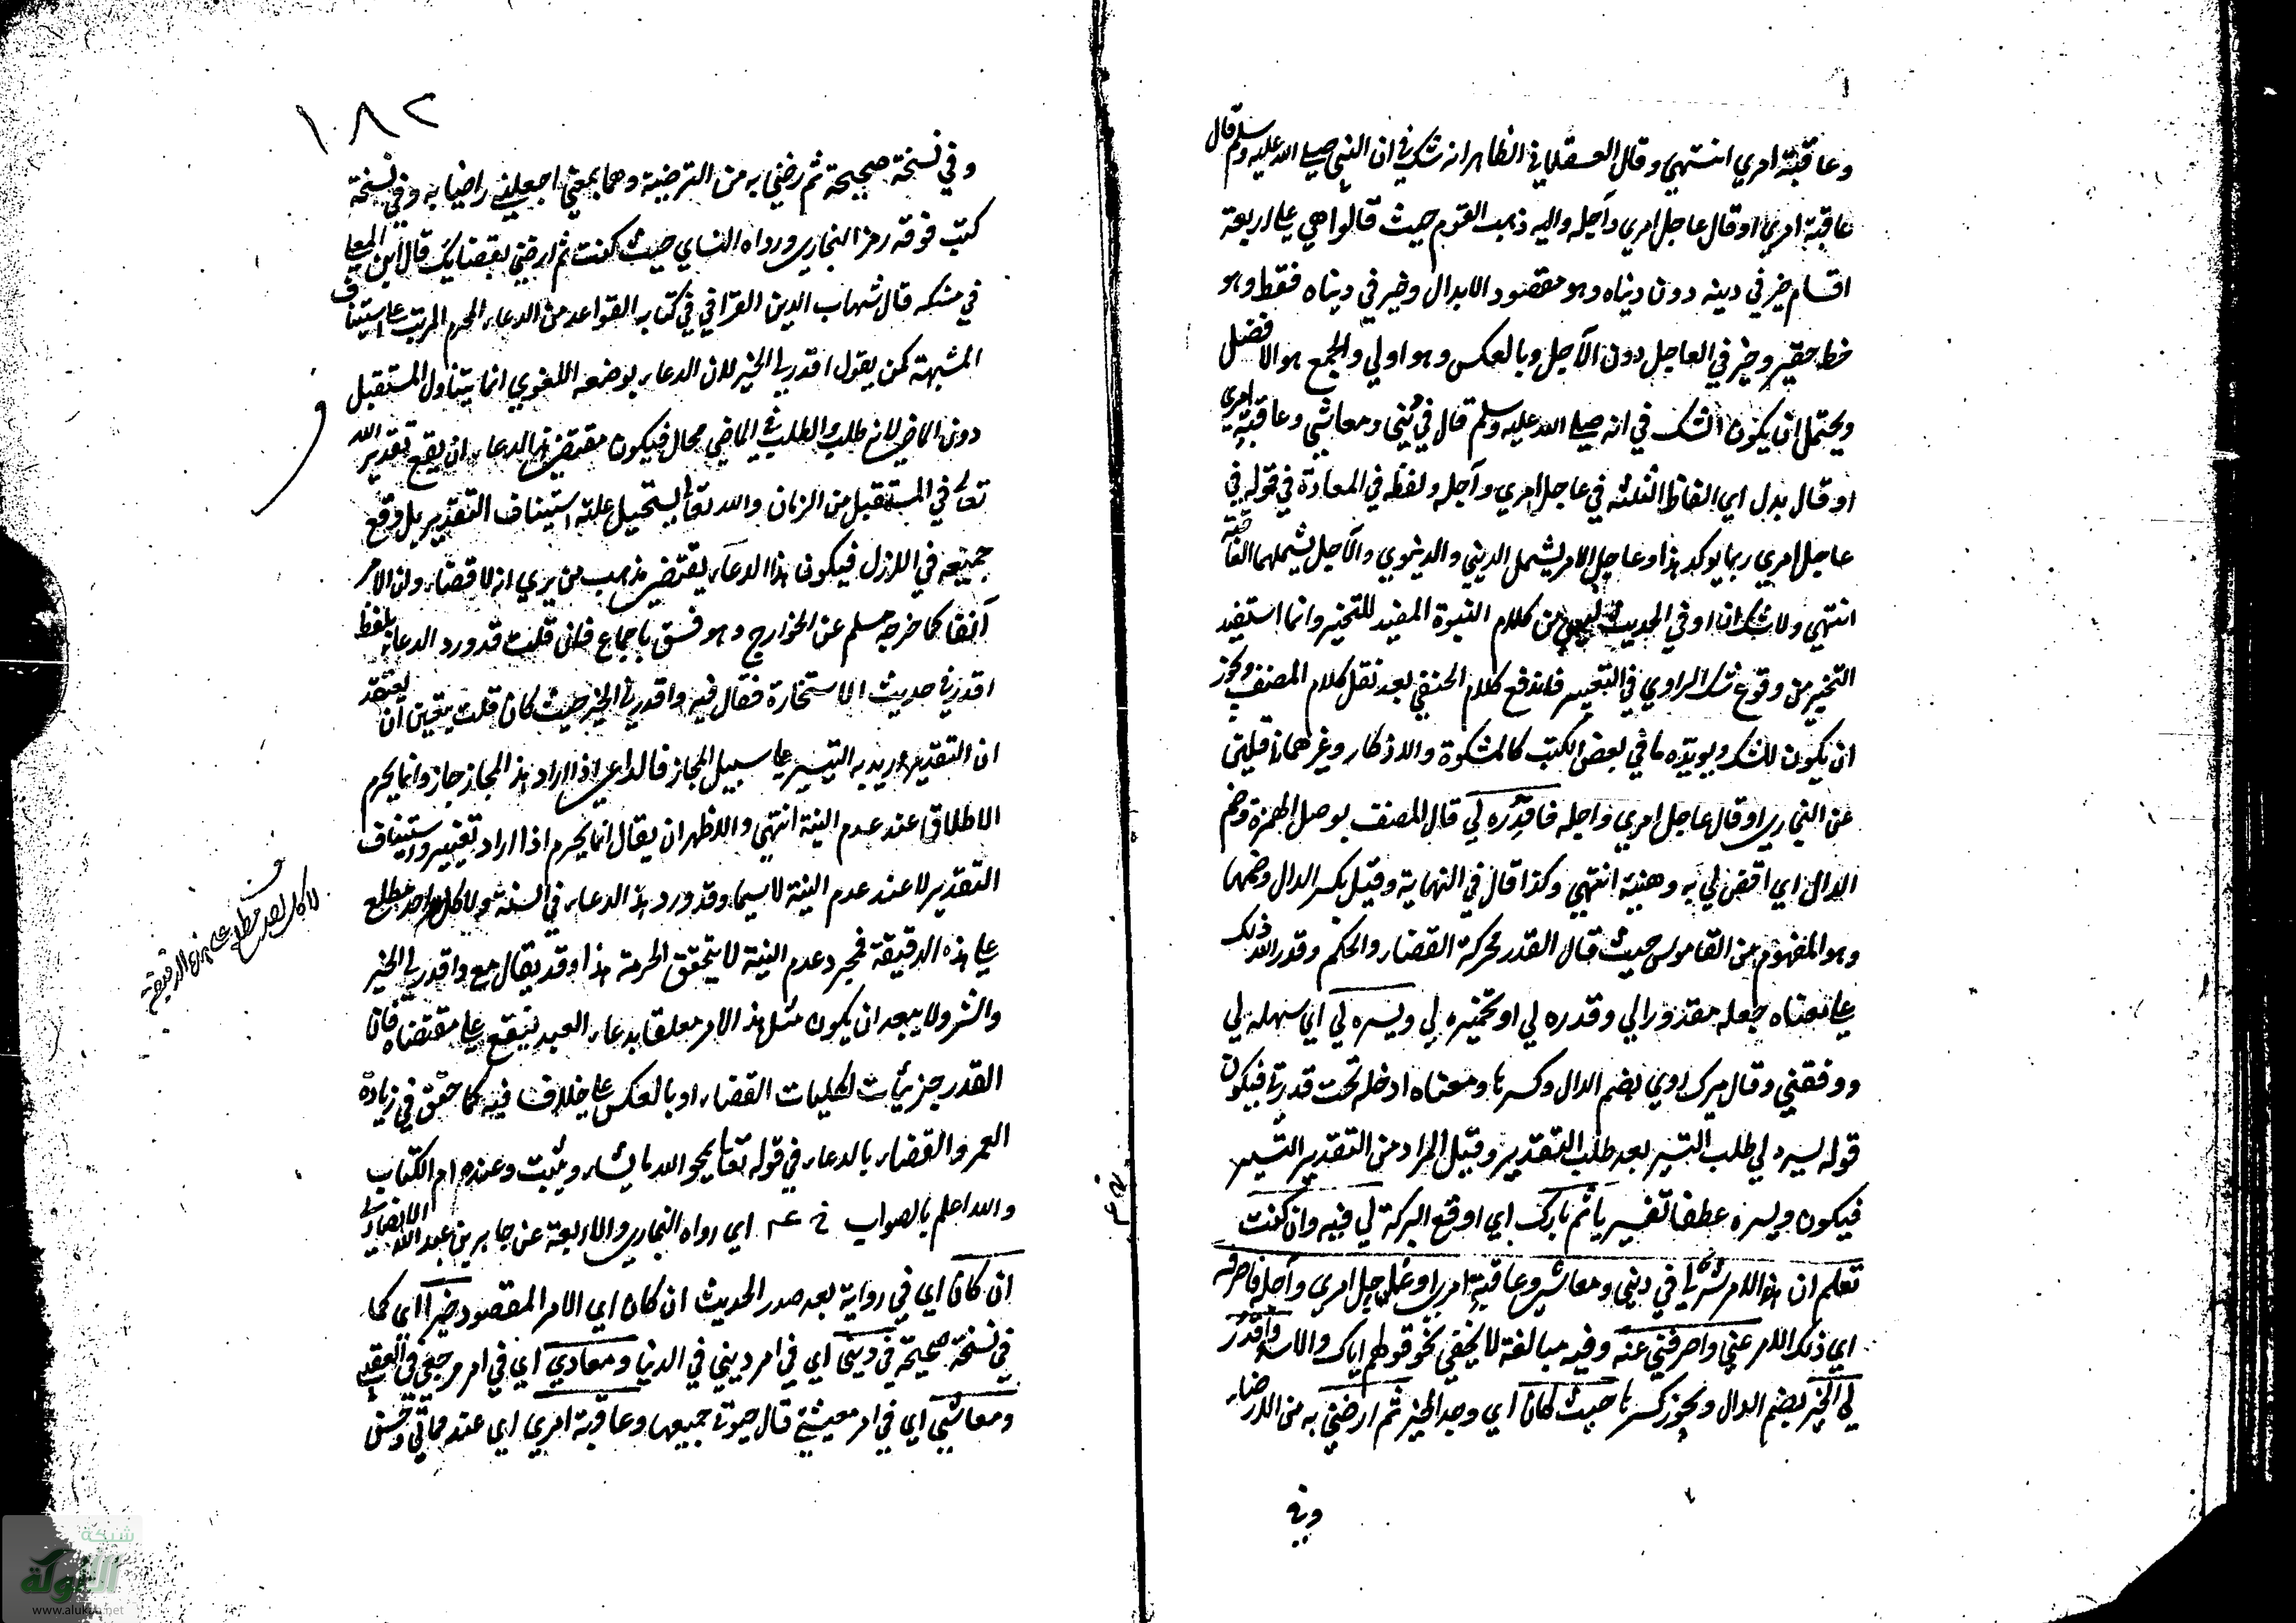 وعاقبة امري انتهي وقال العسقلاني الظاهر انه شك في ان النبي صلى الله عليه وسلم قال
عاقبة امري او قال عاجل امري وآجله واليه ذهب القوم حيث قالوا هي على اربعة
اقسام خير في دينه دون دنياه وهو مقصود الابدال وخير في دنياه فقط وهو
خط حقير وخير في العاجل دون الآجل وبالعكس وهو اولي والجمع هو الافضل
ويحتمل ان يكون الشك في انه صلى الله عليه وسلم قال في ديني ومعاشي وعاقبة امري
او قال بدل اي الفاظ الثلثه في عاجل امري وآجله ولفظ في المعادة في قوله في
عاجل امري ربما يوكد هذا وعاجل الامر يشمل الديني والدنيوي والآجل يشملهما العاقبة
انتهي ولا شك ان او في الحديث ليس من كلام النبوة المفيد للتخيير وانما استفيد
التخيير من وقوع شك الراوي في التعبير فاندفع كلام الحنفي بعد نقل كلام المصنف ويجوز
ان يكون للشك ويويده ما في بعض الكتب كالمشكوة والاذكار وغيرهما ناقلين
عن البخاري او قال عاجل امري واجله فاقدره لي قال المصنف بوصل الهمزة وضم
الدال اي اقض لي به وهيئه انتهي وكذا قال في النهاية وقيل بكسر الدال وضمها
وهو المفهوم من القاموس حيث قال القدر محركة القضاء والحكم وقدر الله ذلك
على معناه جعله مقدورا لي وقدره لي او تخيره لي ويسره لي اي سهله لي
ووفقني وقال ميرك روي بضم الدال وكسرها ومعناه ادخله تحت قدرتي فيكون
قوله يسره لي طلب التيسير بعد طلب التقدير وقيل المراد من التقدير التيسير
فيكون ويسره عطفا تفسيريا ثم بارك اي اوقع البركة لي فيه وان كنت
تعلم ان هذا الامر شر لي في ديني ومعاشي وعاقبة امري او عاجل امري وآجله فاصرفه
اي ذلك الامر عني واصرفني عنه وفيه مبالغة لا يخفي نحو قولهم اياك والاسد واقدر
لي الخير بضم الدال ويجوز كسرها حيث كان اي وجد الخير ثم ارضني به من الارضاء
وفي
١٨٢
وفي نسخة صحيحة ثم رضني به من الترضية وهما بمعني اجعلني راضيا به وفي نسخة
كتب فوقه رمز البخاري ورواه النساي حيث كنت ثم ارضني بقضايك قال ابن المعلى
في منسكه قال شهاب الدين القرافي في كتابه القواعد من الدعاء المحرم المرتب على استيناف
المشيه كمن يقول اقدر لي الخير لان الدعاء بوضعه اللغوي انما يتناول المستقبل
دون الماضي لانه طلب والطلب في الماضي محال فيكون مقتضي هذا الدعاء ان يقع تقدير الله
تعالى في المستقبل من الزمان والله تعالى يستحيل عليه استيناف التقدير بل وقع
جميعه في الازل فيكون هذا الدعاء يقتضي مذهب من يري انه لا قضاء وان الامر
آنفا كما خرجه مسلم عن الخوارج وهو فسق باجماع فان قلت قد ورد الدعا بلفظ
اقدر في حديث الاستخارة فقال فيه واقدر لي الخير حيث كان قلت يتعين ان يعتقد
ان التقدير اريد به التيسير على سبيل المجاز فالداعي اذا اراد هذا المجاز جاز وانما يحرم
الاطلاق عند عدم النية انتهي والاظهر ان يقال انما يحرم اذا اراد تغيير واستيناف
التقدير لا عند عدم النية لا سيما وقد ورد هذا الدعاء في السنة ولا كل احد مطلع
على هذه الدقيقة فمجرد عدم النية لا يتحقق الحرمة هذا وقد يقال مع واقدر لي الخير
والشر ولا يبعد ان يكون مثل هذا الامر معلقا بدعاء العبد ليقع على مقتضاه فان
القدر جزئيات لكليات القضاء او بالعكس على خلاف فيه كما حقق في زيادة
العمر والقضاء بالدعاء في قوله تعالى يمحو الله ما يشاء ويثبت وعنده ام الكتاب
والله اعلم بالصواب خ عه اي رواه البخاري والاربعة عن جابر بن عبد الله الانصاري
ان كان اي في رواية بعد صدر الحديث ان كان اي الامر المقصود خيرا اي كما
في نسخة صحيحة في ديني اي في امر ديني في الدنيا ومعادي اي في امر مرجعي في العقبى
ومعاشي اي في امر معيشتي قال حيوة جميعها وعاقبة امري اي عند مماتي وحسن
لا كل احد مطلع على هذه الدقيقة
شبكة
الألوكة
www.alukah.net